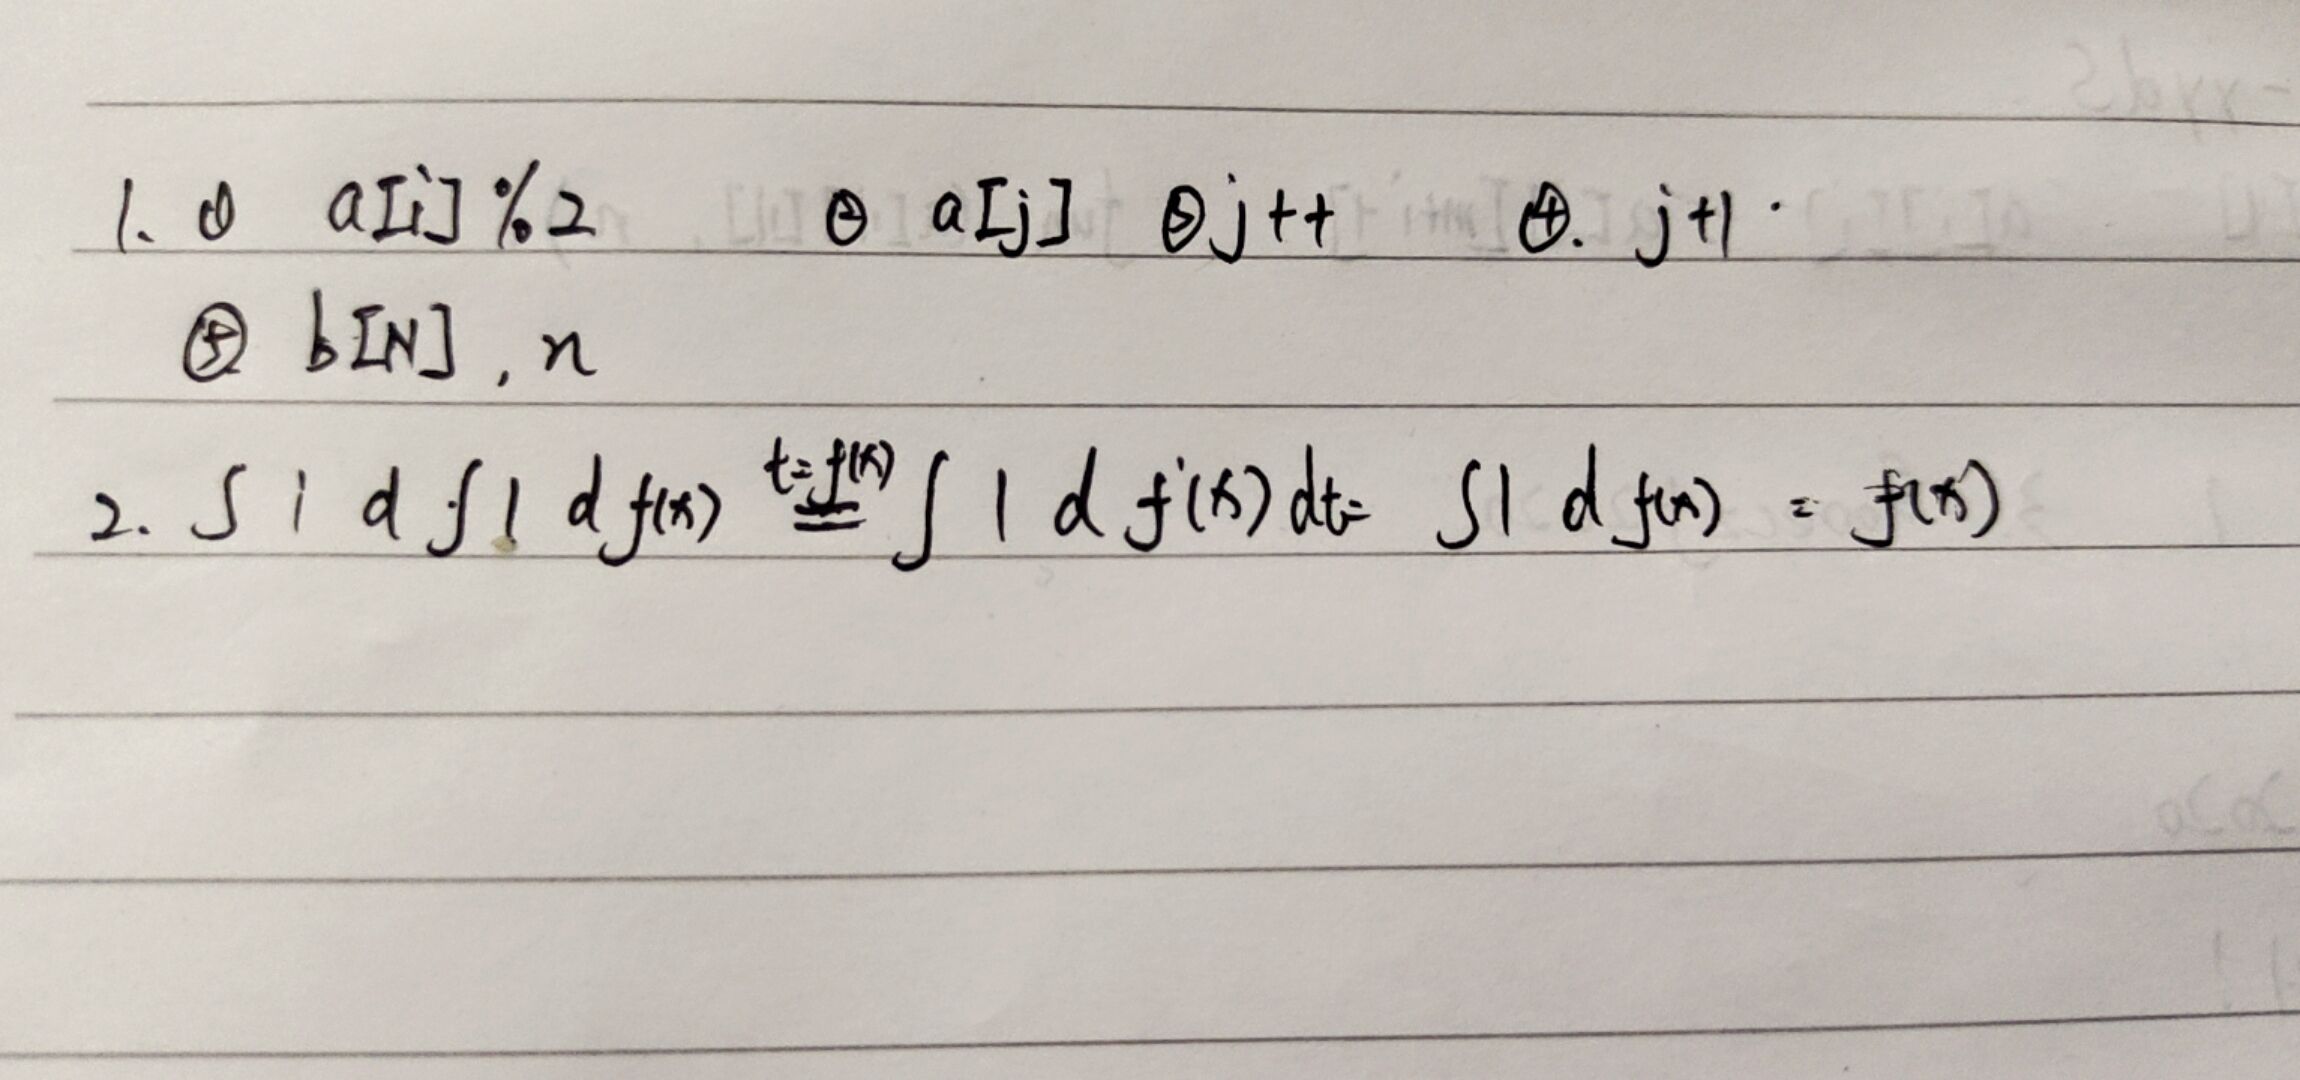 1. ① a[i]%2 ② a[j] ③ j++ ④. j+1.
⑤ b[N], n
2. ∫ 1 d ∫ 1 d f(x) t=f(x) ∫ 1 d f'(x) dt = ∫ 1 d f(x) = f(x)